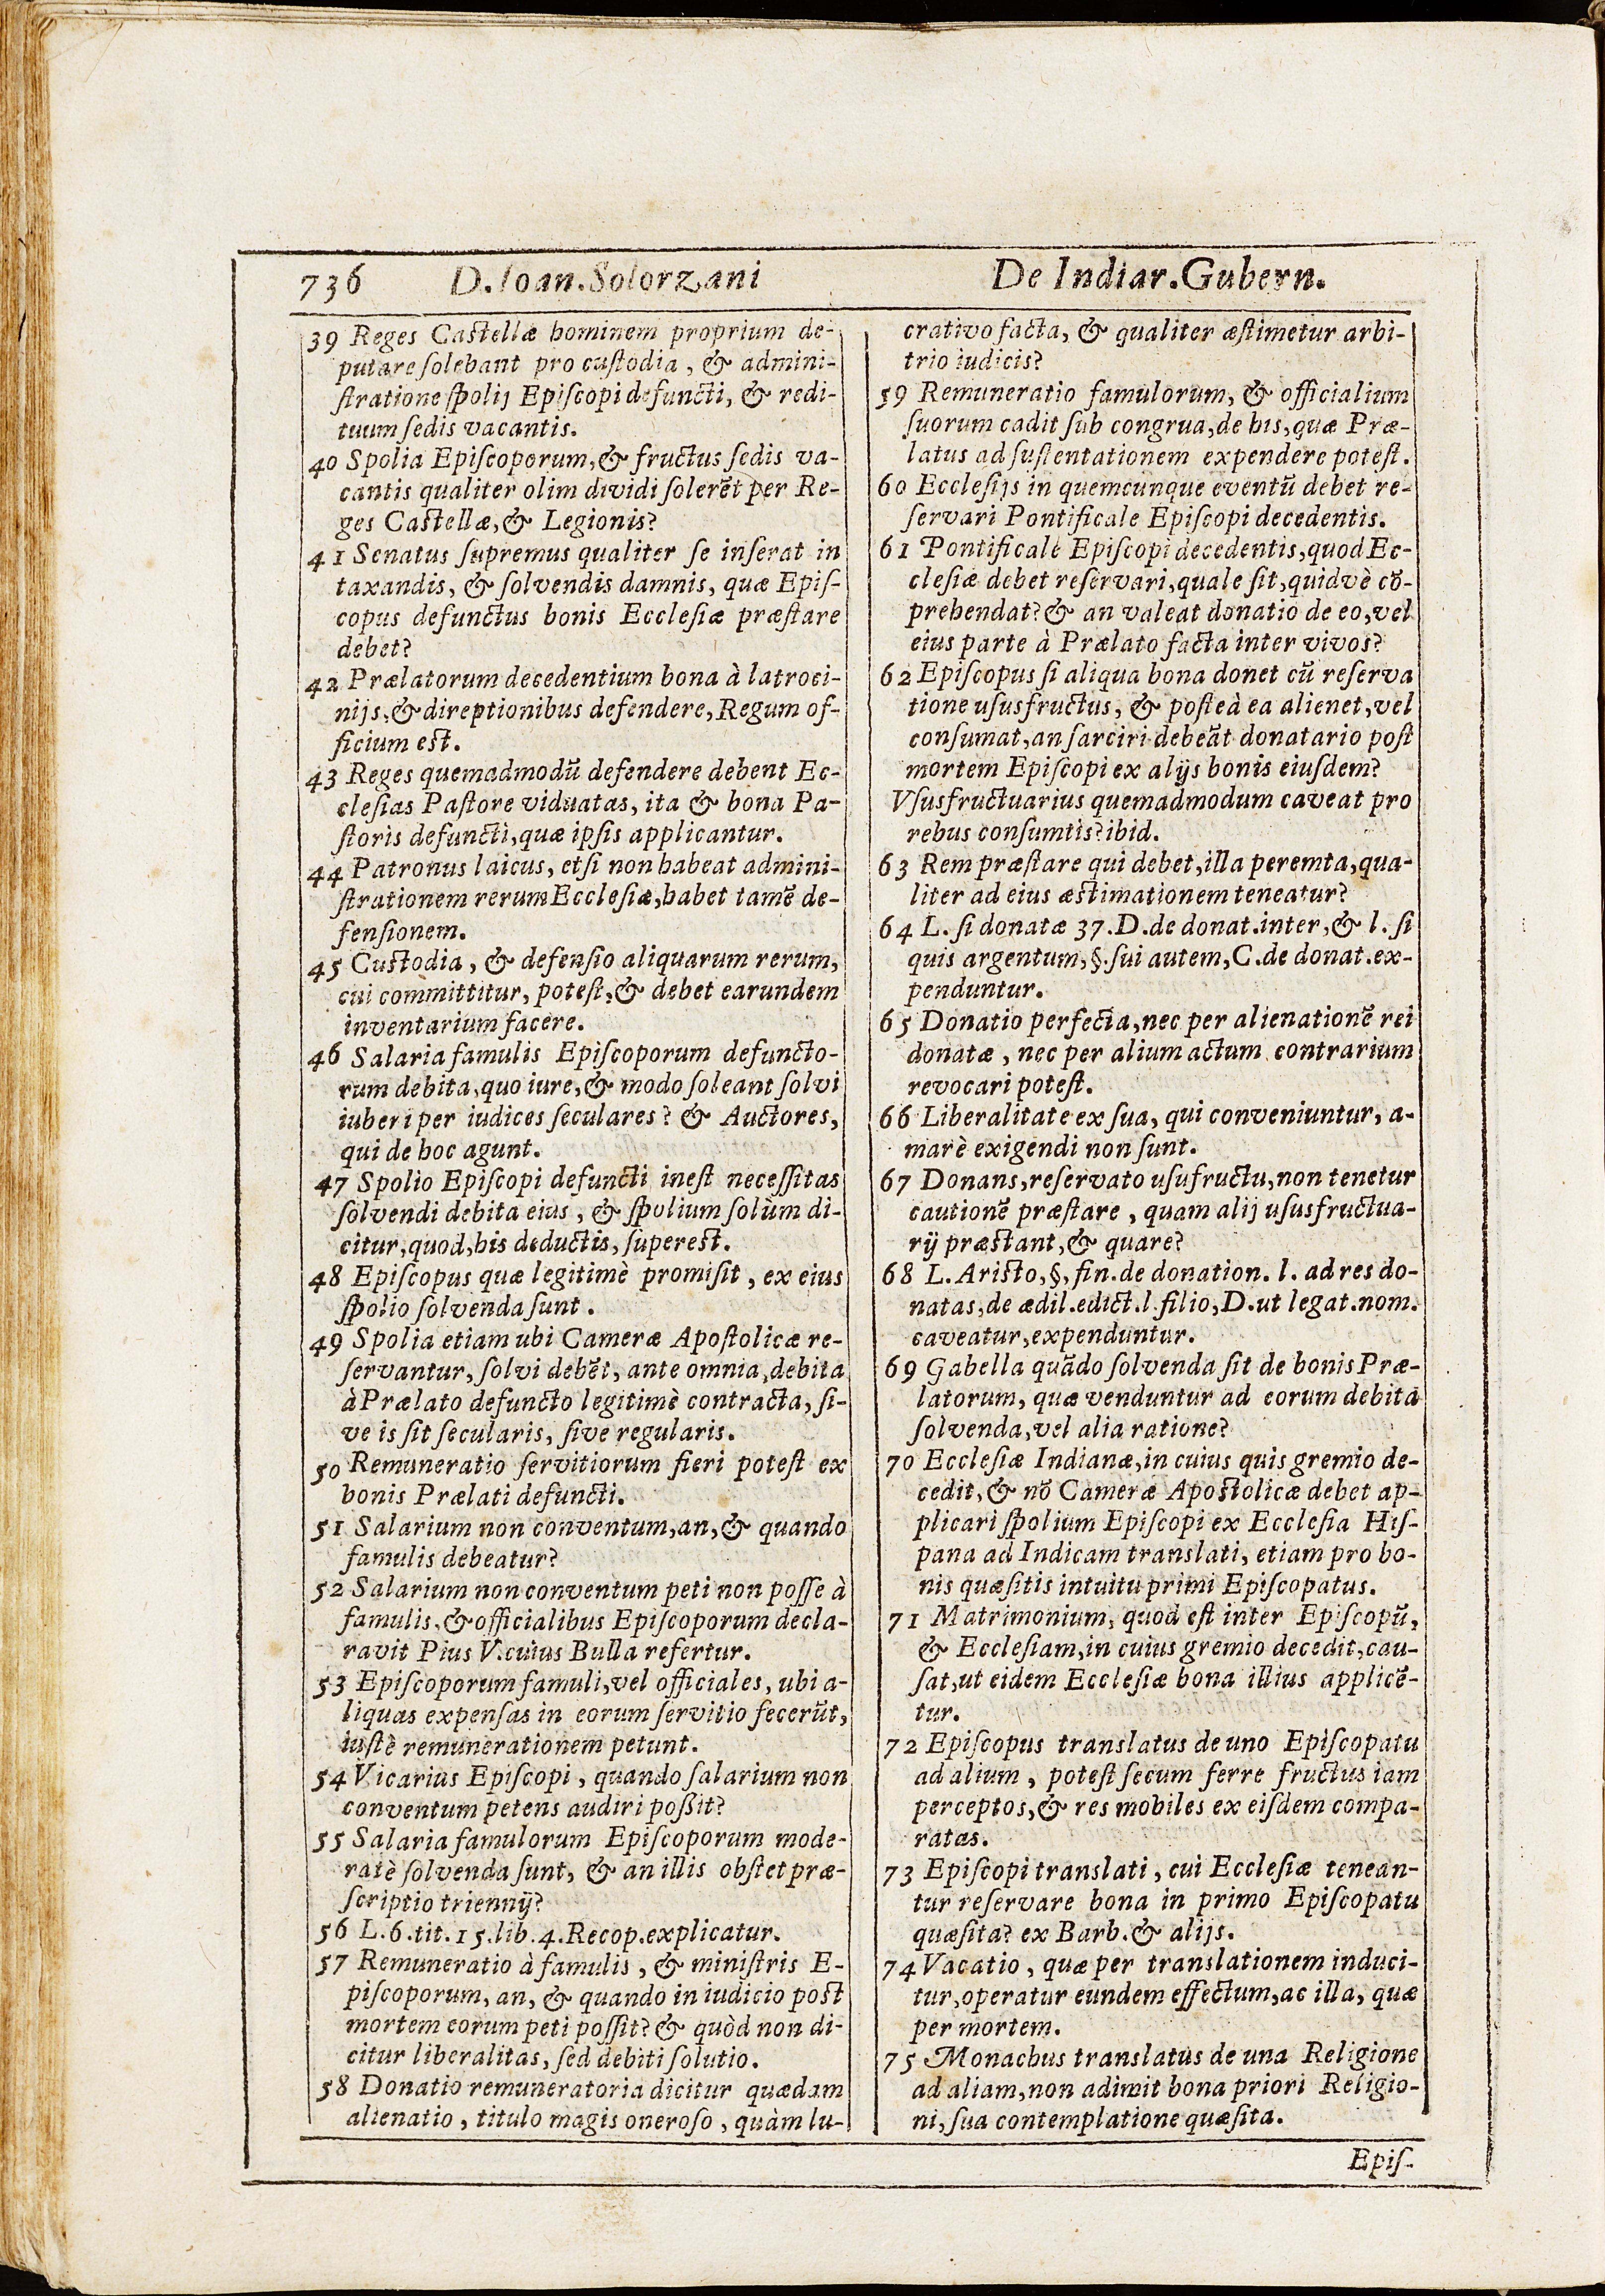 736 D. Ioan. Solorzani De Indiar. Gubern.
39 Reges Castellæ hominem proprium de-
putare solebant pro custodia, & admini-
stratione spolij Episcopi defuncti, & redi-
tuum sedis vacantis.
40 Spolia Episcoporum, & fructus sedis va-
cantis qualiter olim dividi solerẽt per Re-
ges Castellæ, & Legionis?
41 Senatus supremus qualiter se inserat in
taxandis, & solvendis damnis, quæ Epis-
copus defunctus bonis Ecclesiæ præstare
debet?
42 Prælatorum decedentium bona à latroci-
nijs, & direptionibus defendere, Regum of-
ficium est.
43 Reges quemadmodũ defendere debent Ec-
clesias Pastore viduatas, ita & bona Pa-
storis defuncti, quæ ipsis applicantur.
44 Patronus laicus, etsi non habeat admini-
strationem rerum Ecclesiæ, habet tamẽ de-
fensionem.
45 Custodia, & defensio aliquarum rerum,
cui committitur, potest, & debet earundem
inventarium facere.
46 Salaria famulis Episcoporum defuncto-
rum debita, quo iure, & modo soleant solvi
iuberi per iudices seculares? & Auctores,
qui de hoc agunt.
47 Spolio Episcopi defuncti inest necessitas
solvendi debita eius, & spolium solùm di-
citur, quod, his deductis, superest.
48 Episcopus quæ legitimè promisit, ex eius
spolio solvenda sunt.
49 Spolia etiam ubi Cameræ Apostolicæ re-
servantur, solvi debẽt, ante omnia, debita
à Prælato defuncto legitimè contracta, si-
ve is sit secularis, sive regularis.
50 Remuneratio servitiorum fieri potest ex
bonis Prælati defuncti.
51 Salarium non conventum, an, & quando
famulis debeatur?
52 Salarium non conventum peti non posse à
famulis, & officialibus Episcoporum decla-
ravit Pius V. cuius Bulla refertur.
53 Episcoporum famuli, vel officiales, ubi a-
liquas expensas in eorum servitio fecerũt,
iustè remunerationem petunt.
54 Vicarius Episcopi, quando salarium non
conventum petens audiri poßit?
55 Salaria famulorum Episcoporum mode-
ratè solvenda sunt, & an illis obstet præ-
scriptio triennij?
56 L. 6. tit. 15. lib. 4. Recop. explicatur.
57 Remuneratio à famulis, & ministris E-
piscoporum, an, & quando in iudicio post
mortem eorum peti possit? & quòd non di-
citur liberalitas, sed debiti solutio.
58 Donatio remuneratoria dicitur quædam
alienatio, titulo magis oneroso, quàm lu-
crativo facta, & qualiter æstimetur arbi-
trio iudicis?
59 Remuneratio famulorum, & officialium
suorum cadit sub congrua, de his, quæ Præ-
latus ad sustentationem expendere potest.
60 Ecclesijs in quemcunque eventũ debet re-
servari Pontificale Episcopi decedentis.
61 Pontificale Episcopi decedentis, quod Ec-
clesiæ debet reservari, quale sit, quidvè cõ-
prehendat? & an valeat donatio de eo, vel
eius parte à Prælato facta inter vivos?
62 Episcopus si aliqua bona donet cũ reserva
tione ususfructus, & posteà ea alienet, vel
consumat, an sarciri debeãt donatario post
mortem Episcopi ex alijs bonis eiusdem?
Vsusfructuarius quemadmodum caveat pro
rebus consumtis? ibid.
63 Rem præstare qui debet, illa peremta, qua-
liter ad eius æstimationem teneatur?
64 L. si donatæ 37. D. de donat. inter, & l. si
quis argentum, §. sui autem, C. de donat. ex-
penduntur.
65 Donatio perfecta, nec per alienationẽ rei
donatæ, nec per alium actum contrarium
revocari potest.
66 Liberalitate ex sua, qui conveniuntur, a-
marè exigendi non sunt.
67 Donans, reservato usufructu, non tenetur
cautionẽ præstare, quam alij ususfructua-
rij præstant, & quare?
68 L. Aristo, §, fin. de donation. l. ad res do-
natas, de ædil. edict. l. filio, D. ut legat. nom.
caveatur, expenduntur.
69 Gabella quãdo solvenda sit de bonis Præ-
latorum, quæ venduntur ad eorum debita
solvenda, vel alia ratione?
70 Ecclesiæ Indianæ, in cuius quis gremio de-
cedit, & nõ Cameræ Apostolicæ debet ap-
plicari spolium Episcopi ex Ecclesia His-
pana ad Indicam translati, etiam pro bo-
nis quæsitis intuitu primi Episcopatus.
71 Matrimonium, quod est inter Episcopũ,
& Ecclesiam, in cuius gremio decedit, cau-
sat, ut eidem Ecclesiæ bona illius applicẽ-
tur.
72 Episcopus translatus de uno Episcopatu
ad alium, potest secum ferre fructus iam
perceptos, & res mobiles ex eisdem compa-
ratas.
73 Episcopi translati, cui Ecclesiæ tenean-
tur reservare bona in primo Episcopatu
quæsita? ex Barb. & alijs.
74 Vacatio, quæ per translationem induci-
tur, operatur eundem effectum, ac illa, quæ
per mortem.
75 Monachus translatus de una Religione
ad aliam, non adimit bona priori Religio-
ni, sua contemplatione quæsita.
Epis-